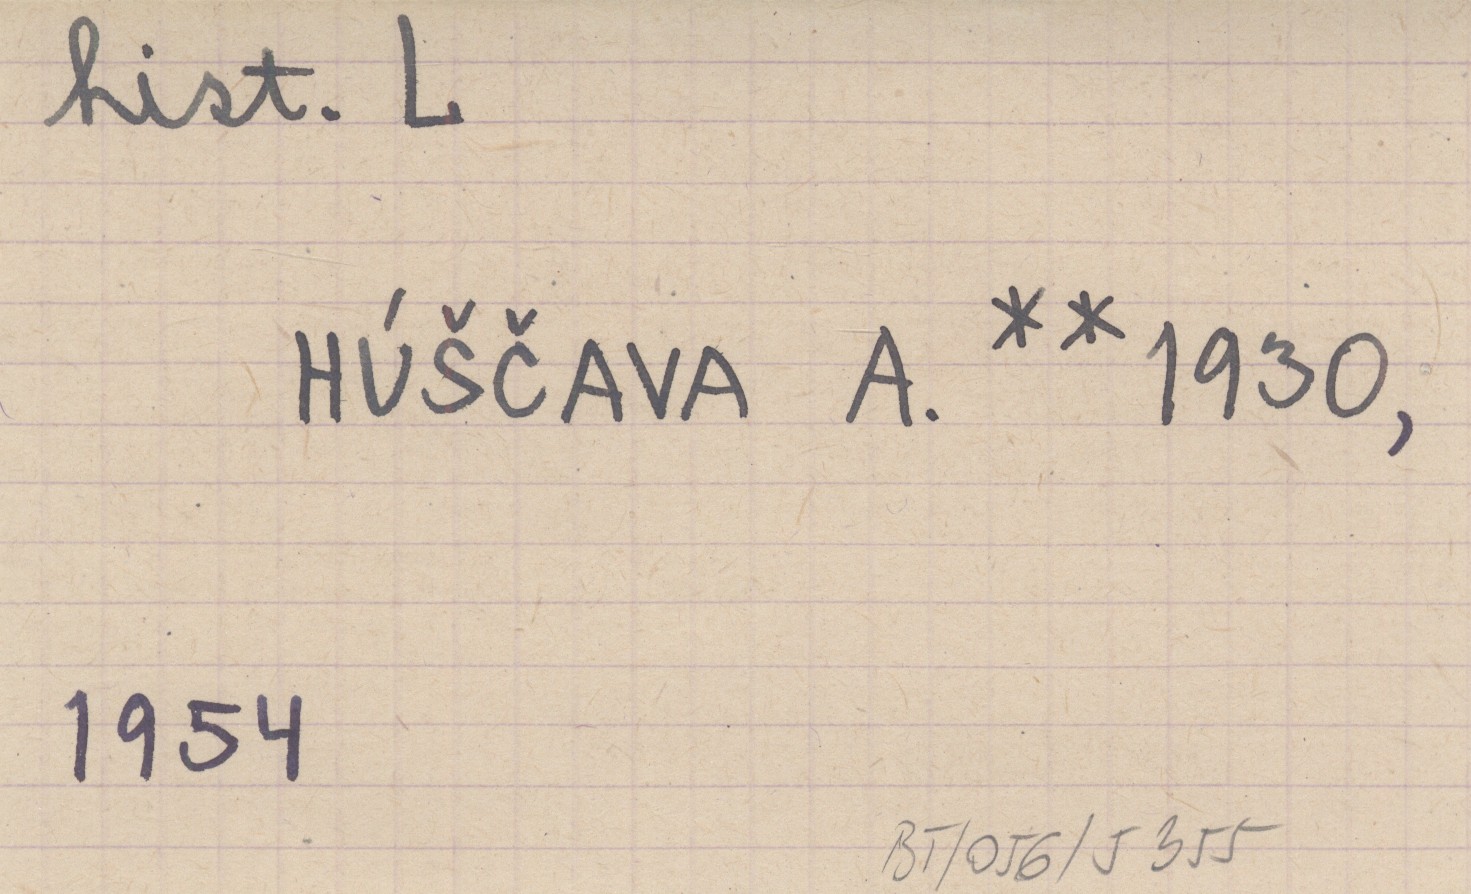 hist. L
HÚŠČAVA A. ** 1930,
1954
BT/056/5355